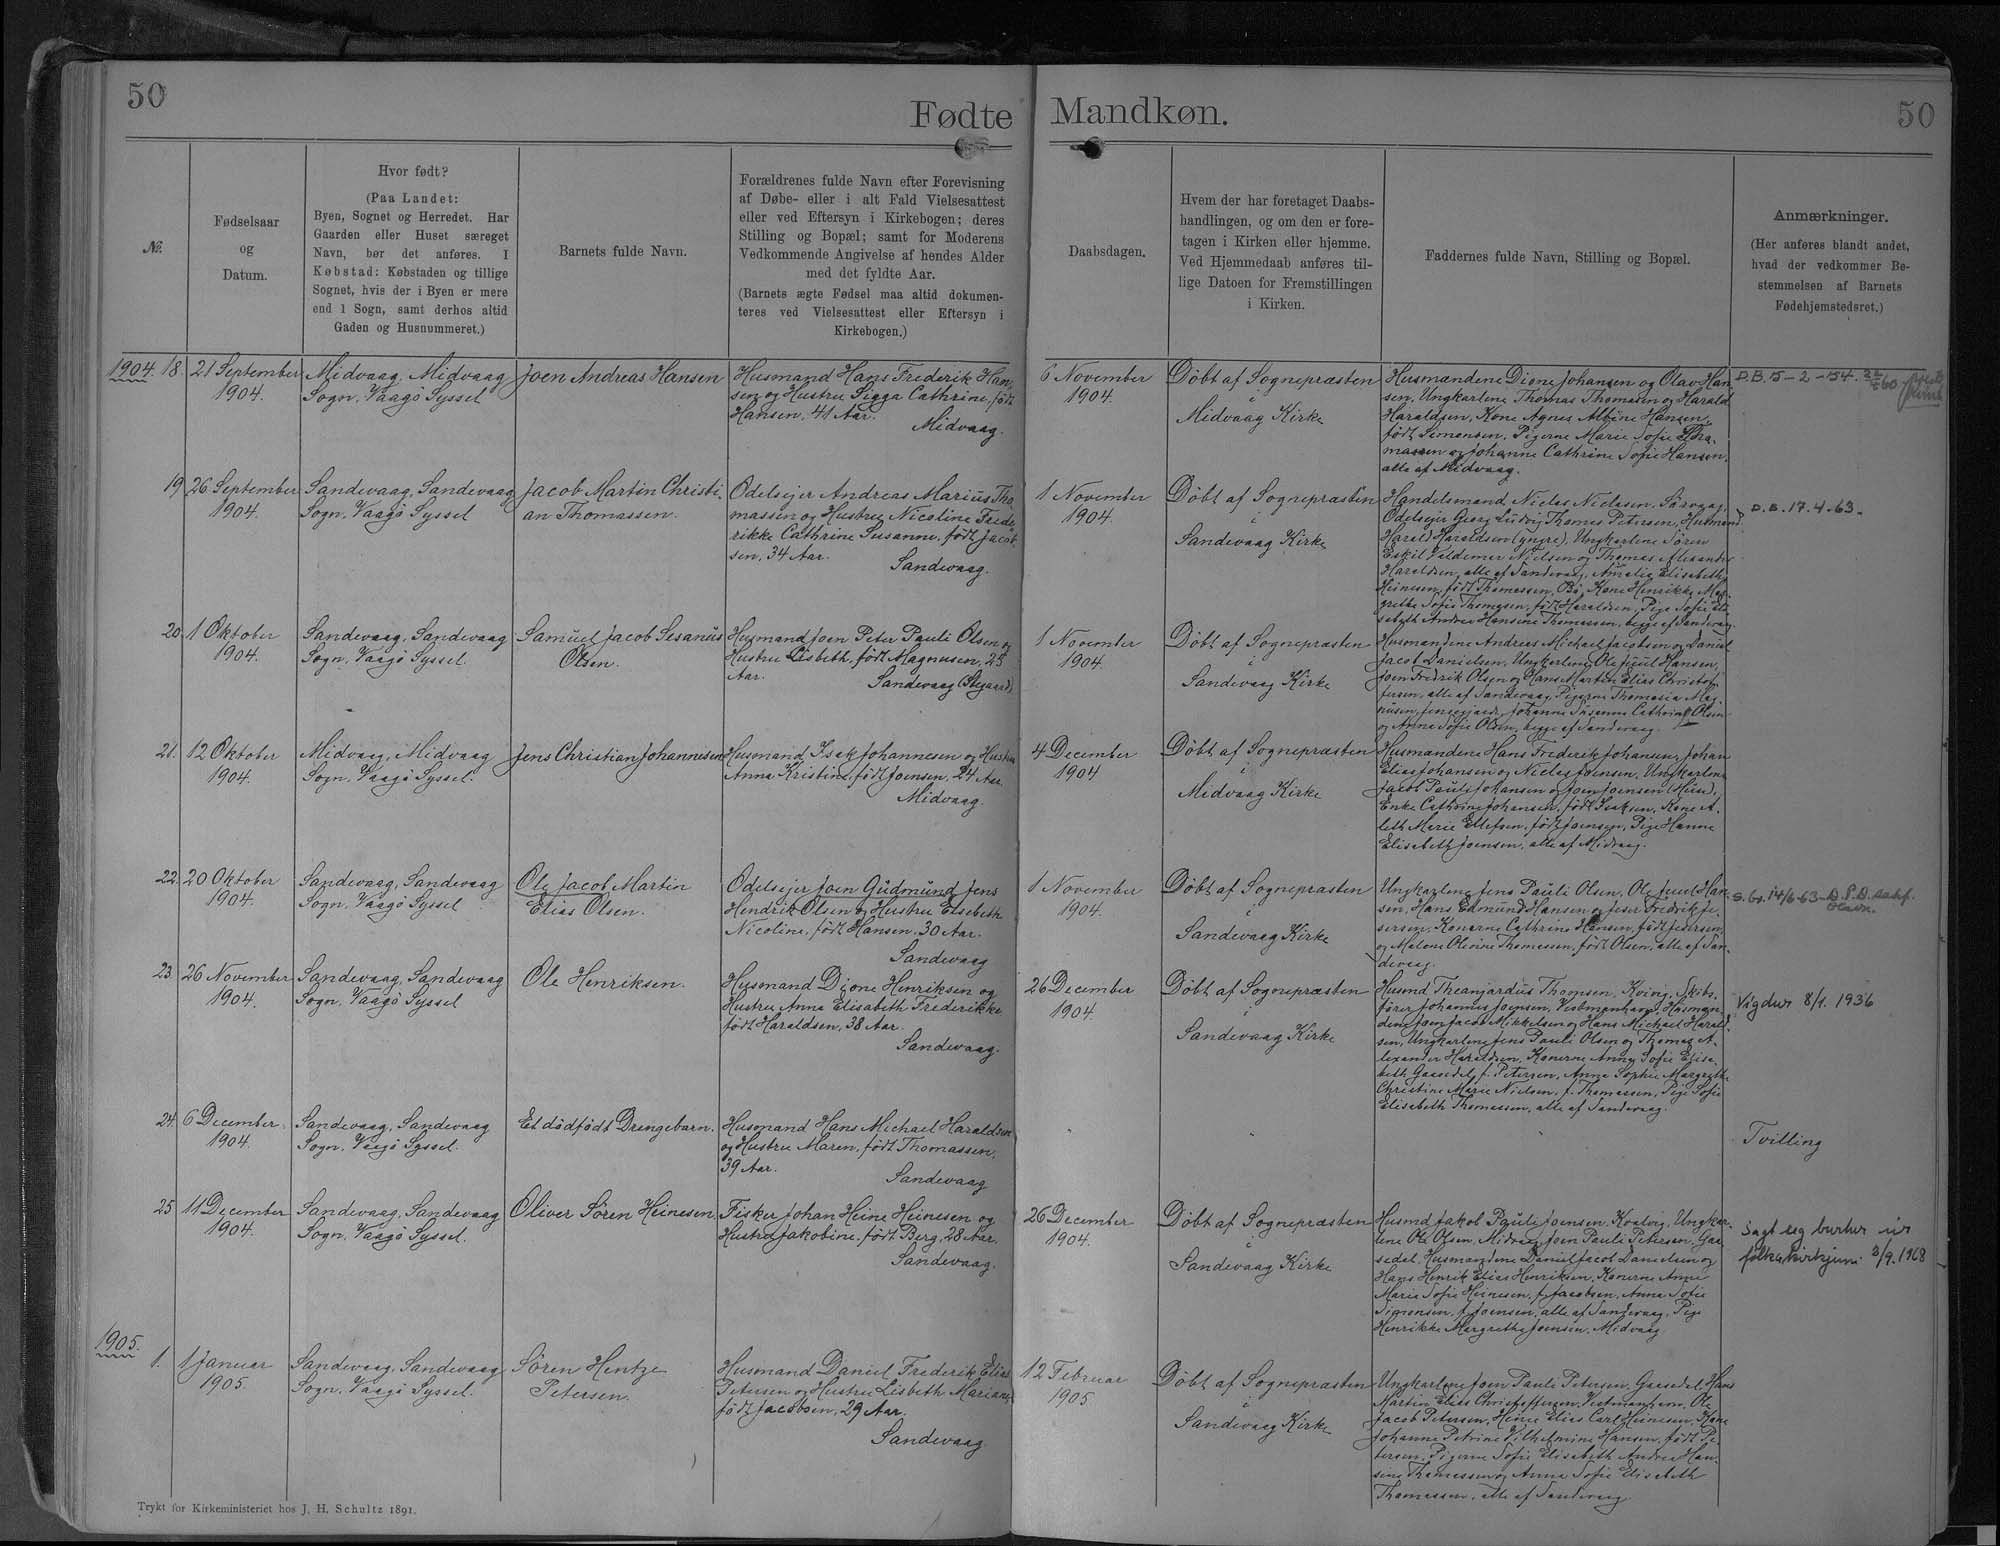 50
Fødte
Nr.
Fødselsaar
og
Datum.
Hvor født?
(Paa Landet:
Byen, Sognet og Herredet. Har
Gaarden eller Huset særeget
Navn, bør det anføres. I
Købstad: Købstaden og tillige
Sognet, hvis der i Byen er mere
end 1 Sogn, samt derhos altid
Gaden og Husnummeret.)
Barnets fulde Navn.
Forældrenes fulde Navn efter Forevisning
af Døbe- eller i alt Fald Vielsesattest
eller ved Eftersyn i Kirkebogen; deres
Stilling og Bopæl; samt for Moderens
Vedkommende Angivelse af hendes Alder
med det fyldte Aar.
(Barnets ægte Fødsel maa altid dokumen-
teres ved Vielsesattest eller Eftersyn i
Kirkebogen.)
1904. 18.
21 September
1904.
Midvaag, Midvaag
Sogn, Vaagö Syssel
Joen Andreas Hansen
Husmand Hans Frederik Han-
sen og Hustru Sigga Cathrine, født
Hansen, 41 Aar.
Midvaag.
19
26 September
1904.
Sandevaag, Sandevaag
Sogn, Vaagö Syssel
Jacob Martin Christi-
an Thomassen.
Odelsejer Andreas Marius Tho-
massen og Hustru Nicoline Frede-
rikke Cathrine Susanne, født Jacob-
sen, 34 Aar.
Sandevaag.
20
1 Oktober
1904.
Sandevaag, Sandevaag
Sogn, Vaagö Syssel.
Samuel Jacob Sesanus
Olsen.
Husmand Joen Peter Pauli Olsen og
Hustru Lisbeth, født Magnusen, 25
Aar.
Sandevaag
21.
12 Oktober
1904.
Midvaag, Midvaag
Sogn, Vaagö Syssel.
Jens Christian Johannesen
Husmand Isak Johannesen og Hustru
Anna Kristine, født Joensen, 24 Aar.
Midvaag.
22.
20 Oktober
1904.
Sandevaag, Sandevaag
Sogn, Vaagö Syssel
Ole Jacob Martin
Elias Olsen.
Odelsejer Joen Gudmund Jens
Hendrik Olsen og Hustru Elsebeth
Nicoline, født Hansen, 30 Aar.
Sandevaag
23.
26 November
1904.
Sandevaag, Sandevaag
Sogn, Vaagö Syssel
Ole Henriksen.
Husmand Dione Henriksen og
Hustru Anna Elisabeth Frederikke
født Haraldsen, 38 Aar.
Sandevaag.
24.
6 December
1904.
Sandevaag, Sandevaag
Sogn, Vaagö Syssel.
Et dödfödt Drengebarn.
Husmand Hans Michael Haraldsen
og Hustru Maren, født Thomassen,
39 Aar.
Sandevaag
25
11 December
1904.
Sandevaag, Sandevaag
Sogn, Vaagö Syssel.
Oliver Sören Heinesen.
Fisker Johan Heine Heinesen og
Hustru Jakobine, født Berg, 28 Aar.
Sandevaag.
1905.
1.
1 Januar
1905.
Sandevaag, Sandevaag
Sogn, Vaagö Syssel.
Sören Hentze
Petersen.
Husmand Daniel Frederik Elias
Petersen og Hustru Lisbeth Mariane,
født Jacobsen, 29 Aar.
Sandevaag.
Trykt for Kirkeministeriet hos J. H. Schultz 1891.
Mandkøn.
50
Daabsdagen.
Hvem der har foretaget Daabs-
handlingen, og om den er fore-
tagen i Kirken eller hjemme.
Ved Hjemmedaab anføres til-
lige Datoen for Fremstillingen
i Kirken.
Faddernes fulde Navn, Stilling og Bopæl.
Anmærkninger.
(Her anføres blandt andet,
hvad der vedkommer Be-
stemmelsen af Barnets
Fødehjemstedsret.)
6 November
1904.
Döbt af Sognepræsten
i
Midvaag Kirke
Husmændene Dione Johansen og Olav Han-
sen, Ungkarlene Thomas Thomasen og Harald
Haraldsen, Kone Agnes Albine Hansen,
født Simonsen, Pigerne Marie Sofie Tho-
massen og Johanne Cathrine Sofie Hansen,
alle af Midvaag.
D.B. 15-2-54.
1 November
1904.
Döbt af Sognepræsten
i
Sandevaag Kirke
Handelsmand Niclas Niclasen, Sörvaag,
Odelsejer Georg Ludvig Thomas Petersen, Husmand
Harald Haraldsen (yngre), Ungkarlene Sören
Eskil Valdemar Nielsen og Thomas Alexander
Haraldsen, alle af Sandevaag, Amalie Elisabeth
Heinesen, født Thomassen, Bö, Kone Henrikke Mar-
grethe Sofie Thomsen, født Haraldsen, Pige Sofie Eli-
sabeth Andrea Hansine Thomassen, begge af Sandevaag.
D.B. 17.4.63.
1 November
1904.
Döbt af Sognepræsten
i
Sandevaag Kirke
Husmændene Andreas Michael Jacobsen og Daniel
Jacob Danielsen, Ungkarlene Ole Juul Hansen,
Joen Fredrik Olsen og Hans Martin Elias Christof-
fersen, alle af Sandevaag, Pigerne Thomasia Mag-
nusen, Johanne Susanne Cathrine Olsen
og Anne Sofie Olsen, begge af Sandevaag.
4 December
1904
Döbt af Sognepræsten
i
Midvaag Kirke
Husmændene Hans Frederik Johansen, Johan
Elias Johansen og Niclas Joensen, Ungkarlene
Jacob Pauli Johansen og Joen Joensen (Huse),
Enke Cathrine Johansen, født Isaksen, Kone A-
leth Marie Ellefsen, født Joensen, Pige Hanna
Elisabeth Joensen, alle af Midvaag.
1 November
1904.
Döbt af Sognepræsten
i
Sandevaag Kirke
Ungkarlene Jens Pauli Olsen, Ole Juul Han-
sen, Hans Edmund Hansen og Jeser Fredrik Je-
sersen, Konerne Cathrine Hansen, født Jesersen,
og Malene Olevine Thomassen, født Olsen, alle af San-
devaag.
26 December
1904.
Döbt af Sognepræsten
i
Sandevaag Kirke
Husmd Theanjardus Thomsen, Kvivig, Skibs-
förer Johannes Joensen, Vestmanhavn, Husmæn-
dene Joen Jacob Mikkelsen og Hans Michael Harald-
sen, Ungkarlene Jens Pauli Olsen og Thomas A-
lexander Haraldsen, Konerne Anna Sofie Elisa-
beth Gaasedal, f. Petersen, Anne Sophie Margrethe
Christine Marie Nielsen, f. Thomassen, Pige Sofie
Elisabeth Thomassen, alle af Sandevaag.
Vigdur 8/1. 1936
Tvilling
26 December
1904.
Döbt af Sognepræsten
i
Sandevaag Kirke
Husmd Jakob Pauli Joensen, Kvalvig, Ungkar-
lene Ole Olsen, Midvaag, Joen Pauli Petersen, Gaa-
sedal, Husmændene Daniel Jacob Danielsen og
Hans Henrik Elias Henriksen, Konerne Anne
Maria Sofie Heinesen, f. Jacobsen, Anna Sofie
Simonsen, f. Joensen, alle af Sandevaag, Pige
Henrikke Margrethe Joensen, Midvaag
Sagt seg burtur úr
fólkakirkjuni 3/9. 1968
12 Februar
1905
Döbt af Sognepræsten
i
Sandevaag Kirke
Ungkarlene Joen Pauli Petersen, Gaasedal, Hans
Martin Elias Christoffersen, Vestmanhavn, Ole
Jacob Petersen, Heine Elias Carl Heinesen, Kone
Johanne Petrine Vilhelmine Hansen, født Pe-
tersen, Pigerne Sofie Elisabeth Andrea Han-
sine Thomassen og Anna Sofie Elisabeth
Thomassen, alle af Sandevaag